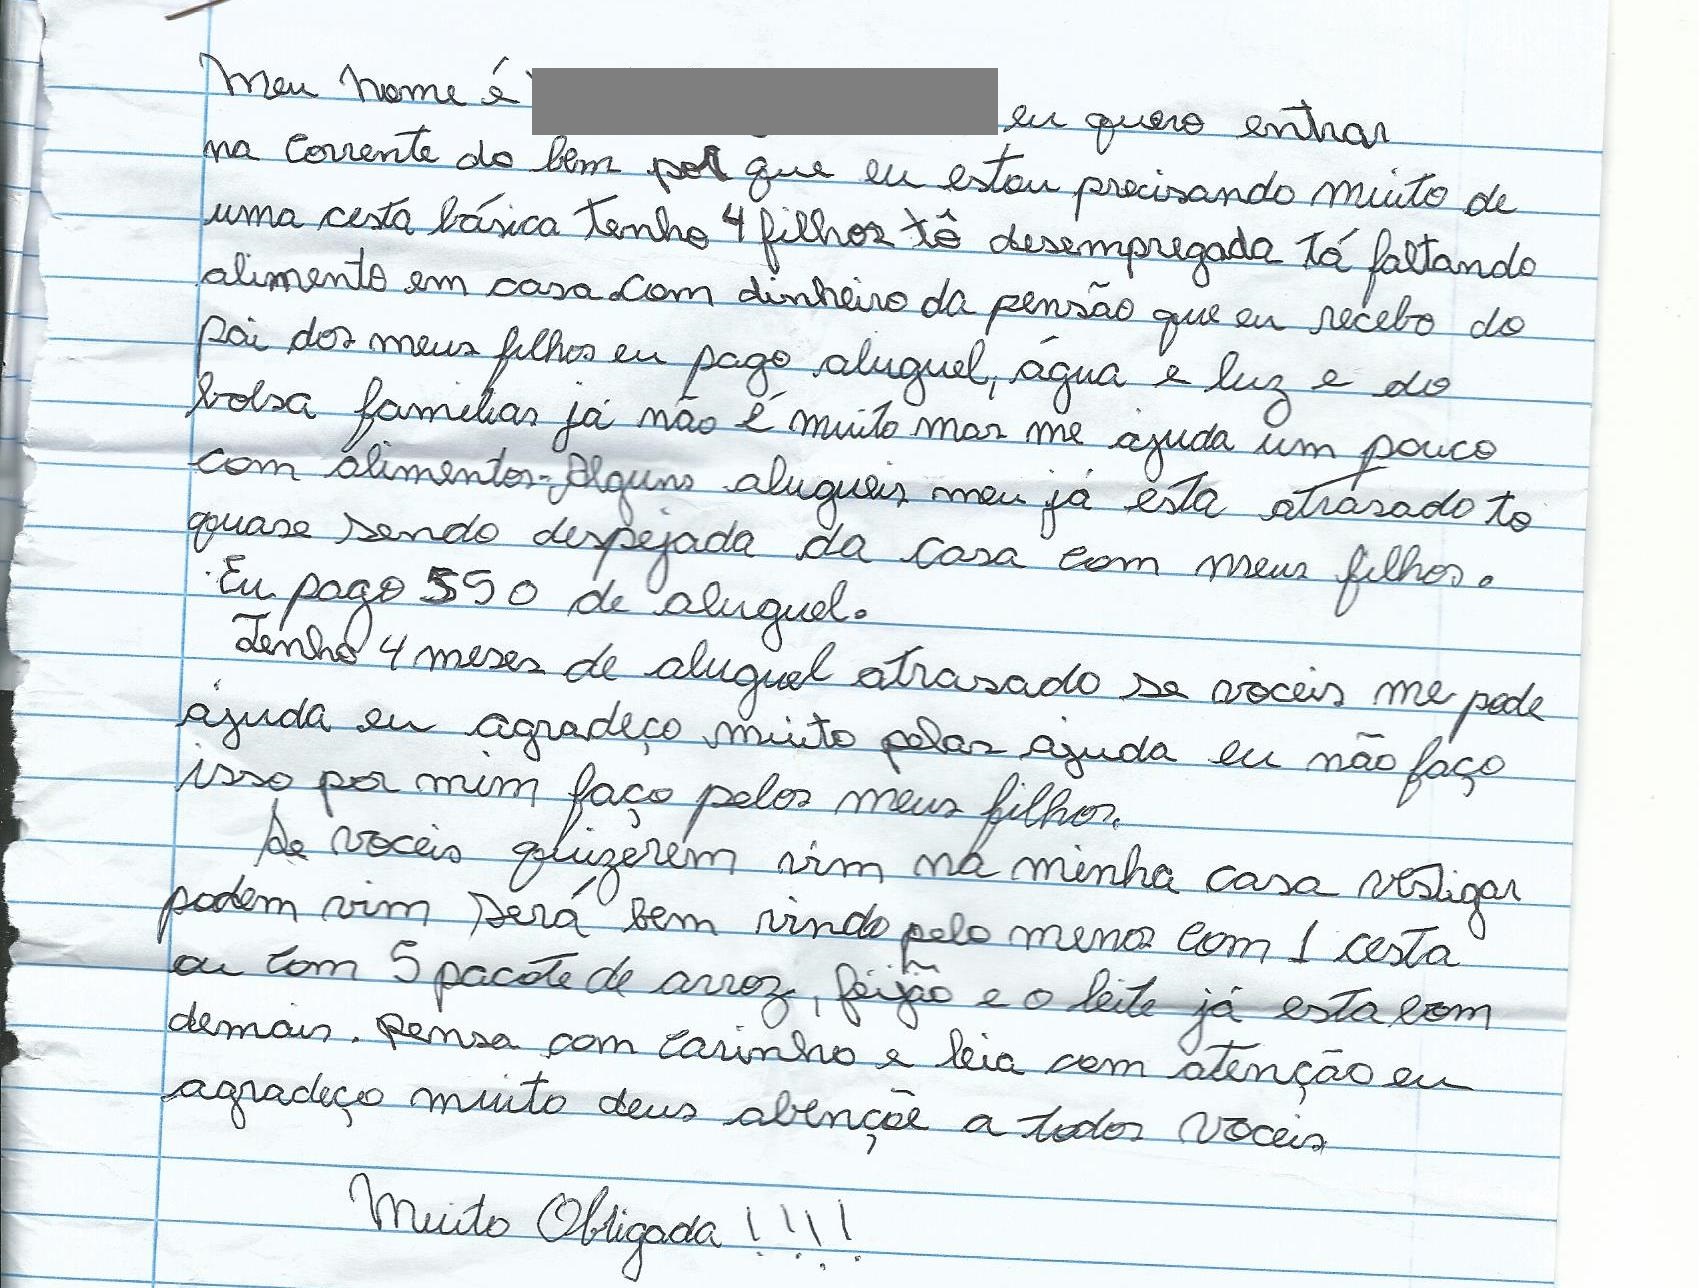 Meu nome é eu quero entrar
na corrente do bem por que eu estou precisando muito de
uma cesta básica tenho 4 filhos tô desempregada tá faltando
alimento em casa. com dinheiro da pensão que eu recebo do
pai dos meus filhos eu pago aluguel, água e luz e do
bolsa familias já não é muito mas me ajuda um pouco
com alimentos. Alguns alugueis meu já esta atrasado to
quase sendo despejada da casa com meus filhos.
Eu pago 550 de aluguel.
Tenho 4 meses de aluguel atrasado se voceis me pode
ajuda eu agradeço muito pelas ajuda eu não faço
isso por mim faço pelos meus filhos.
Se voceis quizerem vim na minha casa vestigar
podem vim será bem vindo pelo menos com 1 cesta
ou com 5 pacote de arroz, feijão e o leite já esta bom
demais. pensa com carinho e leia com atenção eu
agradeço muito deus abençõe a todos voceis
Muito Obrigada !!!!